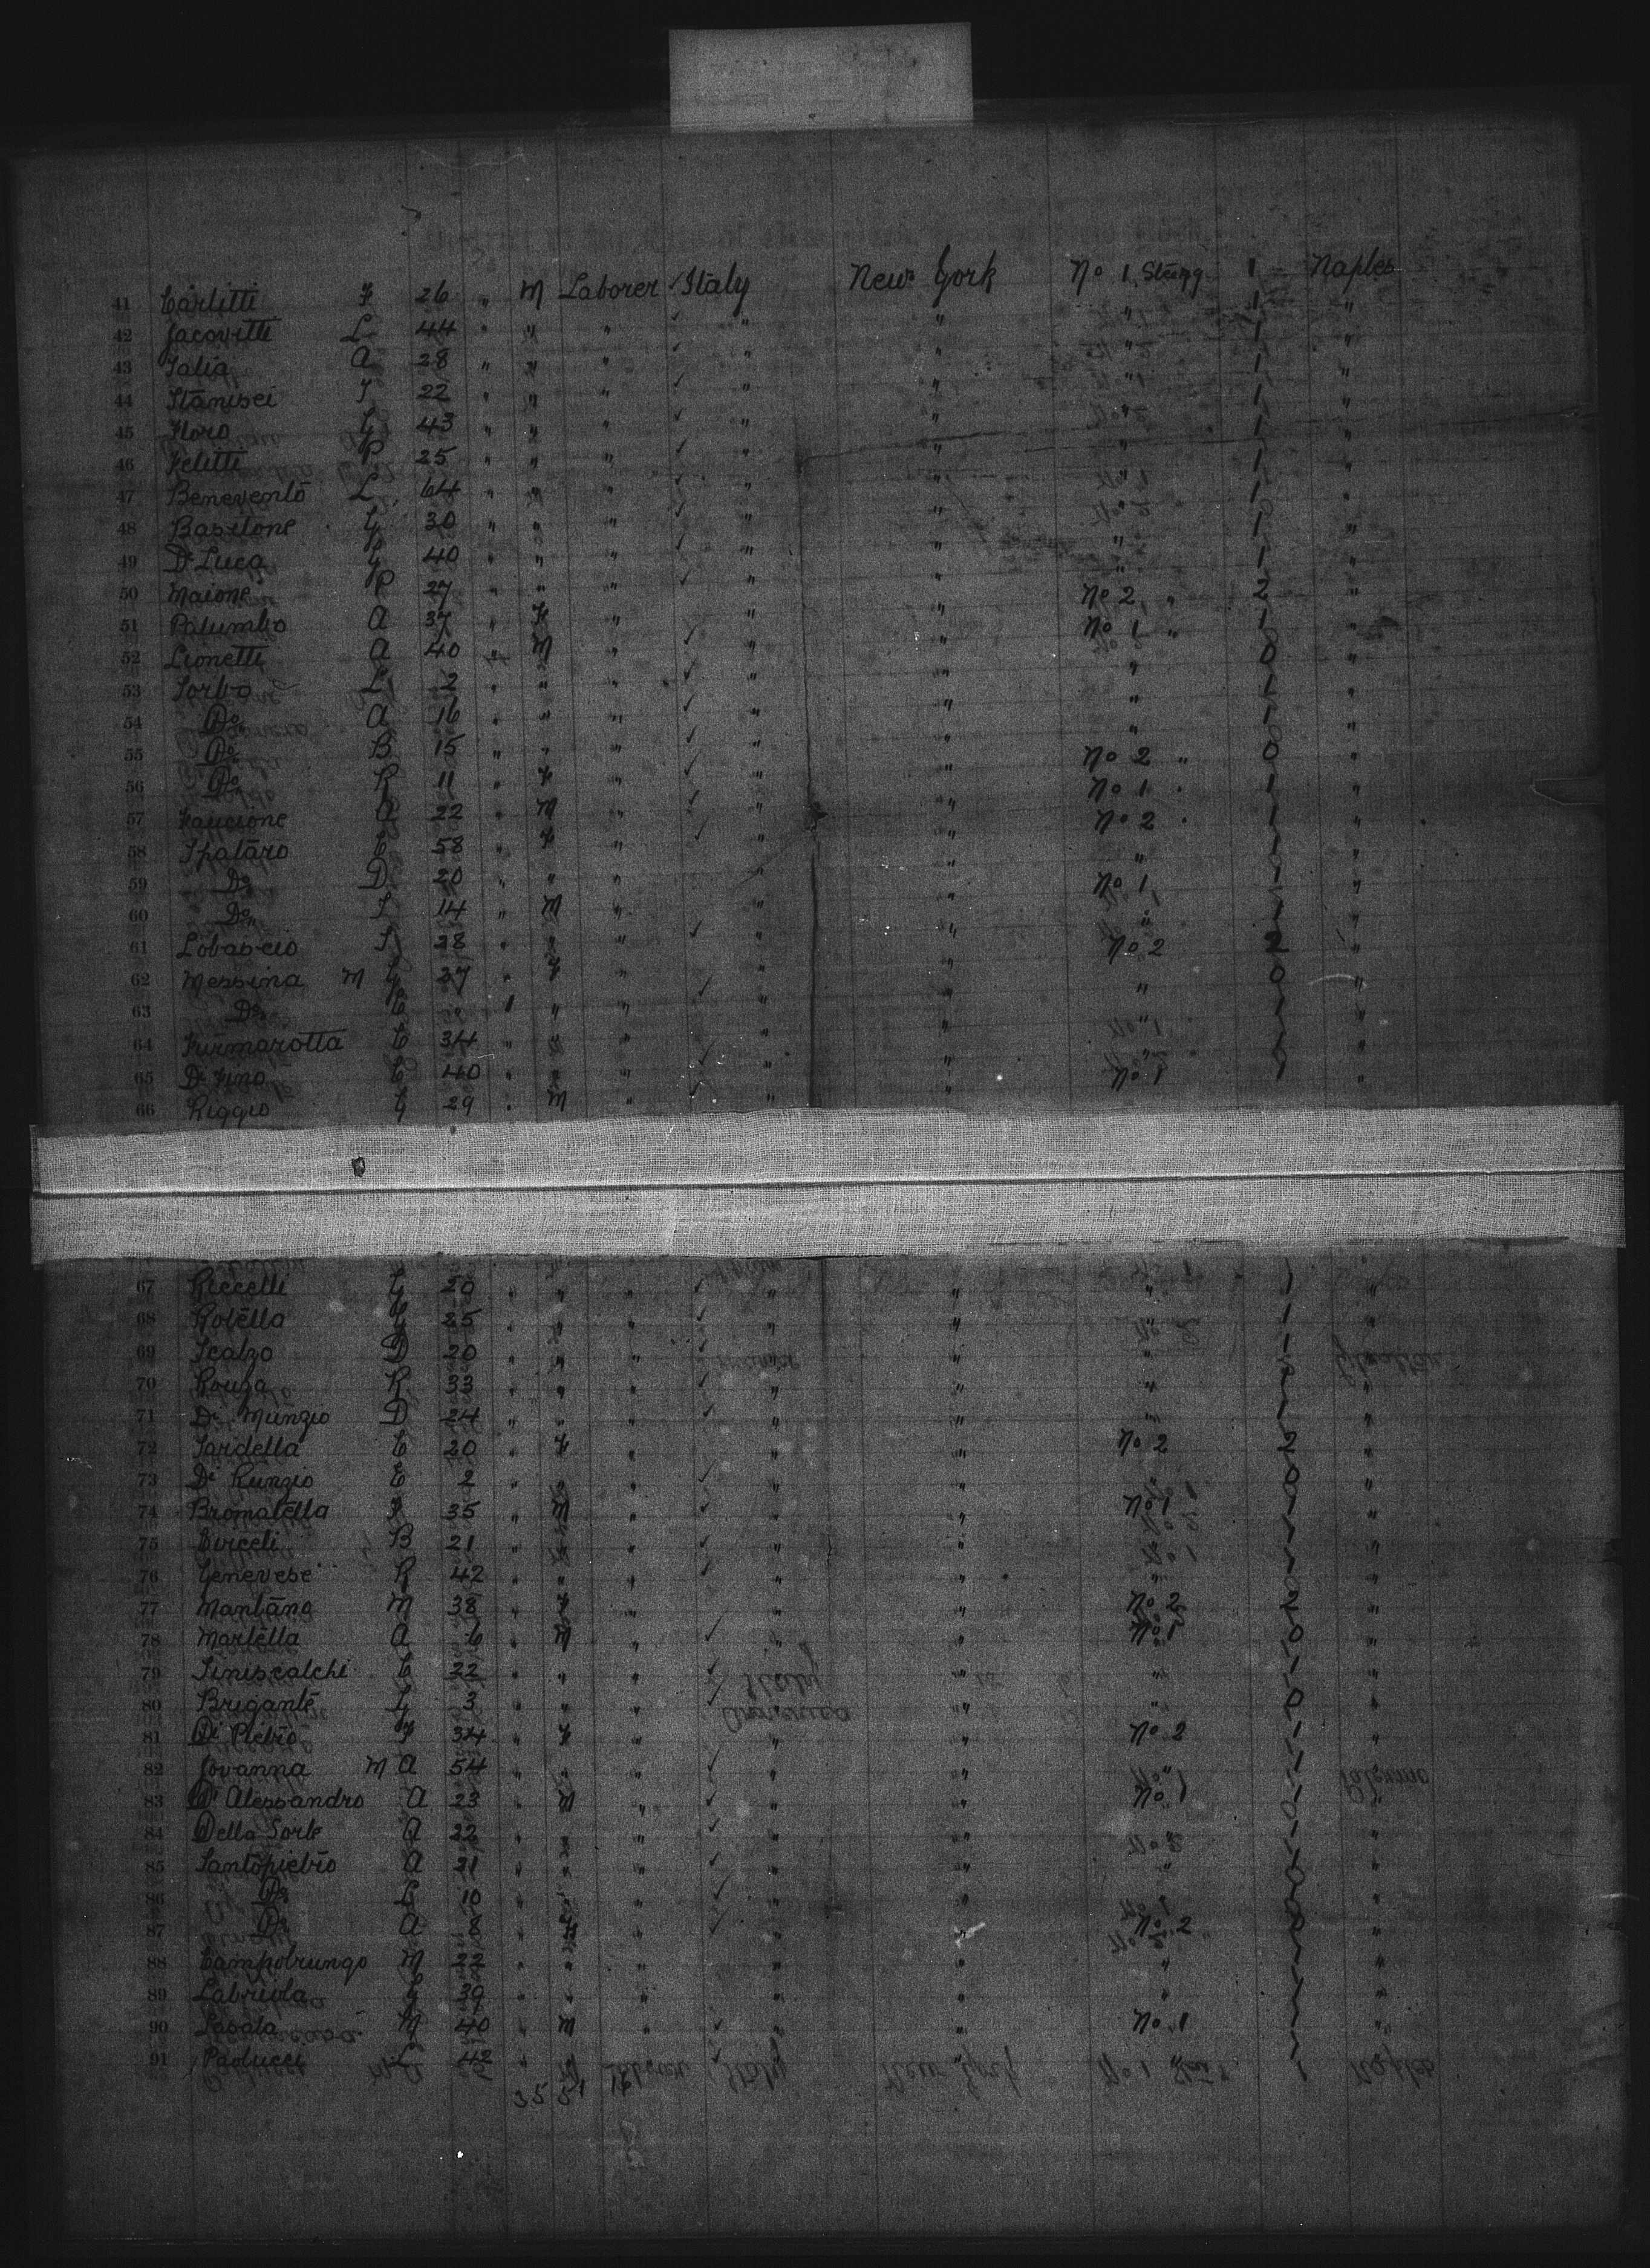 41 Carlitti F 26 " M Laborer Italy New York No 1 Steerg 1 Naples
42 Jacovitti L 44 " " " " " " 1 "
43 Talia A 28 " " " " " " 1 "
44 Stanisci F 22 " " " " " " 1 "
45 Floro G 43 " " " " " " 1 "
46 Felitti P 25 " " " " " " 1 "
47 Benevento L 64 " " " " " " 1 "
48 Bastone G 30 " " " " " " 1 "
49 Di Luca G 40 " " " " " " 1 "
50 Maione P 27 " " " " " No 2 " 2 "
51 Palumbo A 37 " F " " " No 1 " 1 "
52 Lionetti A 40 " M " " " " 0 "
53 Sorbo L 2 " " " " " " 1 "
54 Do A 16 " " " " " " 1 "
55 Do B 15 " " " " " No 2 " 0 "
56 Do R 11 " F " " " No 1 " 1 "
57 Faucione A 22 " M " " " No 2 " 1 "
58 Spataro C 58 " F " " " " 1 "
59 Do D 20 " " " " " No 1 1 "
60 Do S 14 " M " " " " 1 "
61 Lobascio S 28 " " " " " No 2 2 "
62 Messina M G 27 " F " " " " 0 "
63 Do C " " " " " 1 "
64 Furmarotta C 34 " " " " " " 1 "
65 Di Fino C 40 " " " " " No 1 1 "
66 Riggio G 29 " M " " "
67 Riccelli G 20 " " " " " " 1
68 Rotella G 25 " " " " " " 1
69 Scalzo D 20 " " " " " " 1
70 Rouga R 33 " " " " " " 1 "
71 Di Munzio D 24 " " " " " " 1 "
72 Sardella C 20 " F " " " No 2 2 "
73 Di Runzio E 2 " " " " " " 0 "
74 Bromatella F 35 " M " " " No 1 1 "
75 Durceli B 21 " " " " " " 1 "
76 Genevese R 42 " " " " " " 1 "
77 Mantano M 38 " F " " " No 2 2 "
78 Martella A 6 " M " " " No 1 0 "
79 Siniscalchi C 22 " " " " " " 1 "
80 Brigante G 3 " " " " " " 0 "
81 Di Pietro F 34 " F " " " No 2 1 "
82 Jovanna M A 54 " " " " " " 1 "
83 D'Alessandro A 23 " M " " " No 1 1 "
84 Della Sorte A 22 " " " " " " 1 "
85 Santopietro A 21 " " " " " " 1 "
86 Do L 10 " " " " " " 0 "
87 Do A 8 " F " " " No 2 0 "
88 Campobrungo M 22 " " " " " " 1 "
89 Labriola G 39 " " " " " " 1 "
90 Lasala M 40 " M " " " No 1 1 "
91 Paolucci L 42 " "
35 51